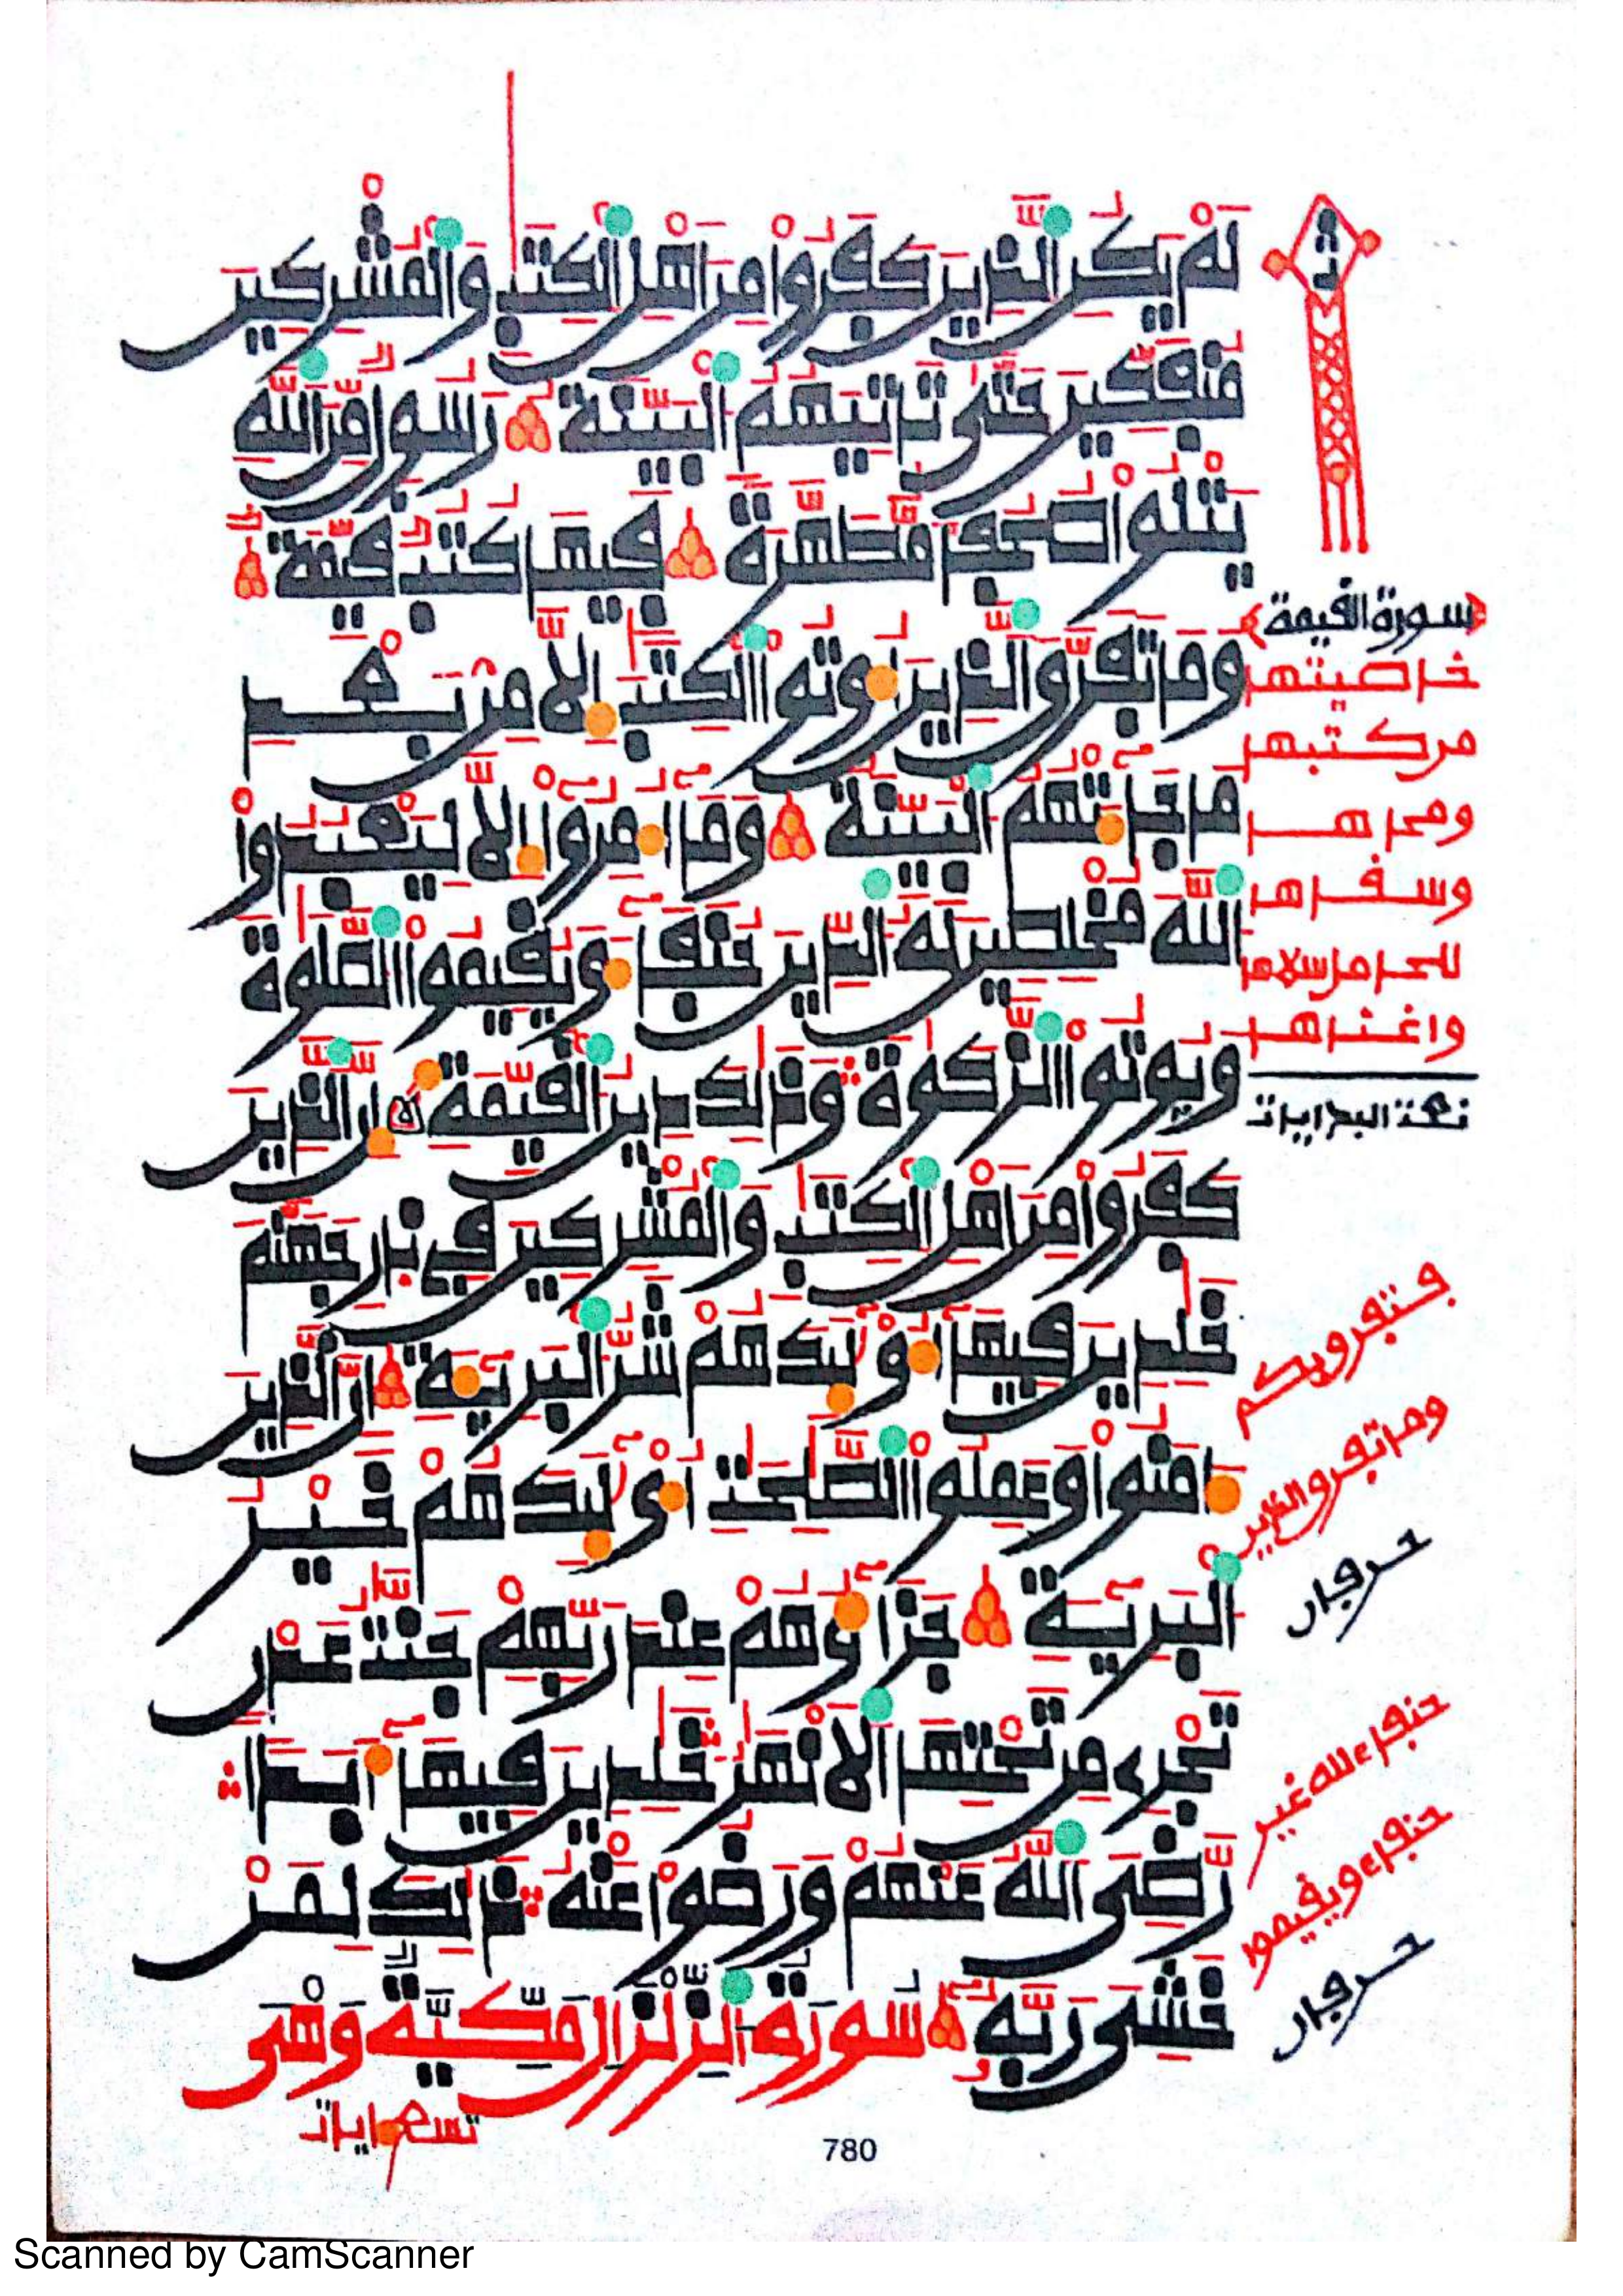 لَمْ يَكُنِ الذِينَ كَفَرُوا مِنَ اهْلِ الْكِتَٰبِ وَالْمُشْرِكِينَ
مُنفَكِّينَ حَتَّىٰ تَاتِيَهُمُ الْبَيِّنَةُ رَسُولٌ مِّنَ اللَّهِ
يَتْلُوا صُحُفًا مُّطَهَّرَةً فِيهَا كُتُبٌ قَيِّمَةٌ
وَمَا تَفَرَّقَ الذِينَ أُوتُوا الْكِتَٰبَ إِلَّا مِنۢ بَعْدِ
مَا جَآءَتْهُمُ الْبَيِّنَةُ وَمَآ أُمِرُوٓا إِلَّا لِيَعْبُدُوا
اللَّهَ مُخْلِصِينَ لَهُ الدِّينَ حُنَفَآءَ وَيُقِيمُوا الصَّلَوٰةَ
وَيُوتُوا الزَّكَوٰةَ وَذَٰلِكَ دِينُ الْقَيِّمَةِ إِنَّ الذِينَ
كَفَرُوا مِنَ اهْلِ الْكِتَٰبِ وَالْمُشْرِكِينَ فِي نَارِ جَهَنَّمَ
خَٰلِدِينَ فِيهَآ أُوْلَٰٓئِكَ هُمْ شَرُّ الْبَرِيٓئَةِ إِنَّ الذِينَ
ءَامَنُوا وَعَمِلُوا الصَّٰلِحَٰتِ أُوْلَٰٓئِكَ هُمْ خَيْرُ
الْبَرِيٓئَةِ جَزَآؤُهُمْ عِندَ رَبِّهِمْ جَنَّٰتُ عَدْنٍ
تَجْرِي مِن تَحْتِهَا الَانْهَٰرُ خَٰلِدِينَ فِيهَآ أَبَدًا
رَّضِيَ اللَّهُ عَنْهُمْ وَرَضُوا عَنْهُ ذَٰلِكَ لِمَنْ
خَشِيَ رَبَّهُ سُورَةُ الزِّلْزَالِ مَكِّيَّةٌ وَهْيَ
تسع ايات
سورة القيمة
خاصيتها
من كتبها
ومحاها
وسقاها
واغناها
تحت البدايات
وما تفرق الذين
780
Scanned by CamScanner